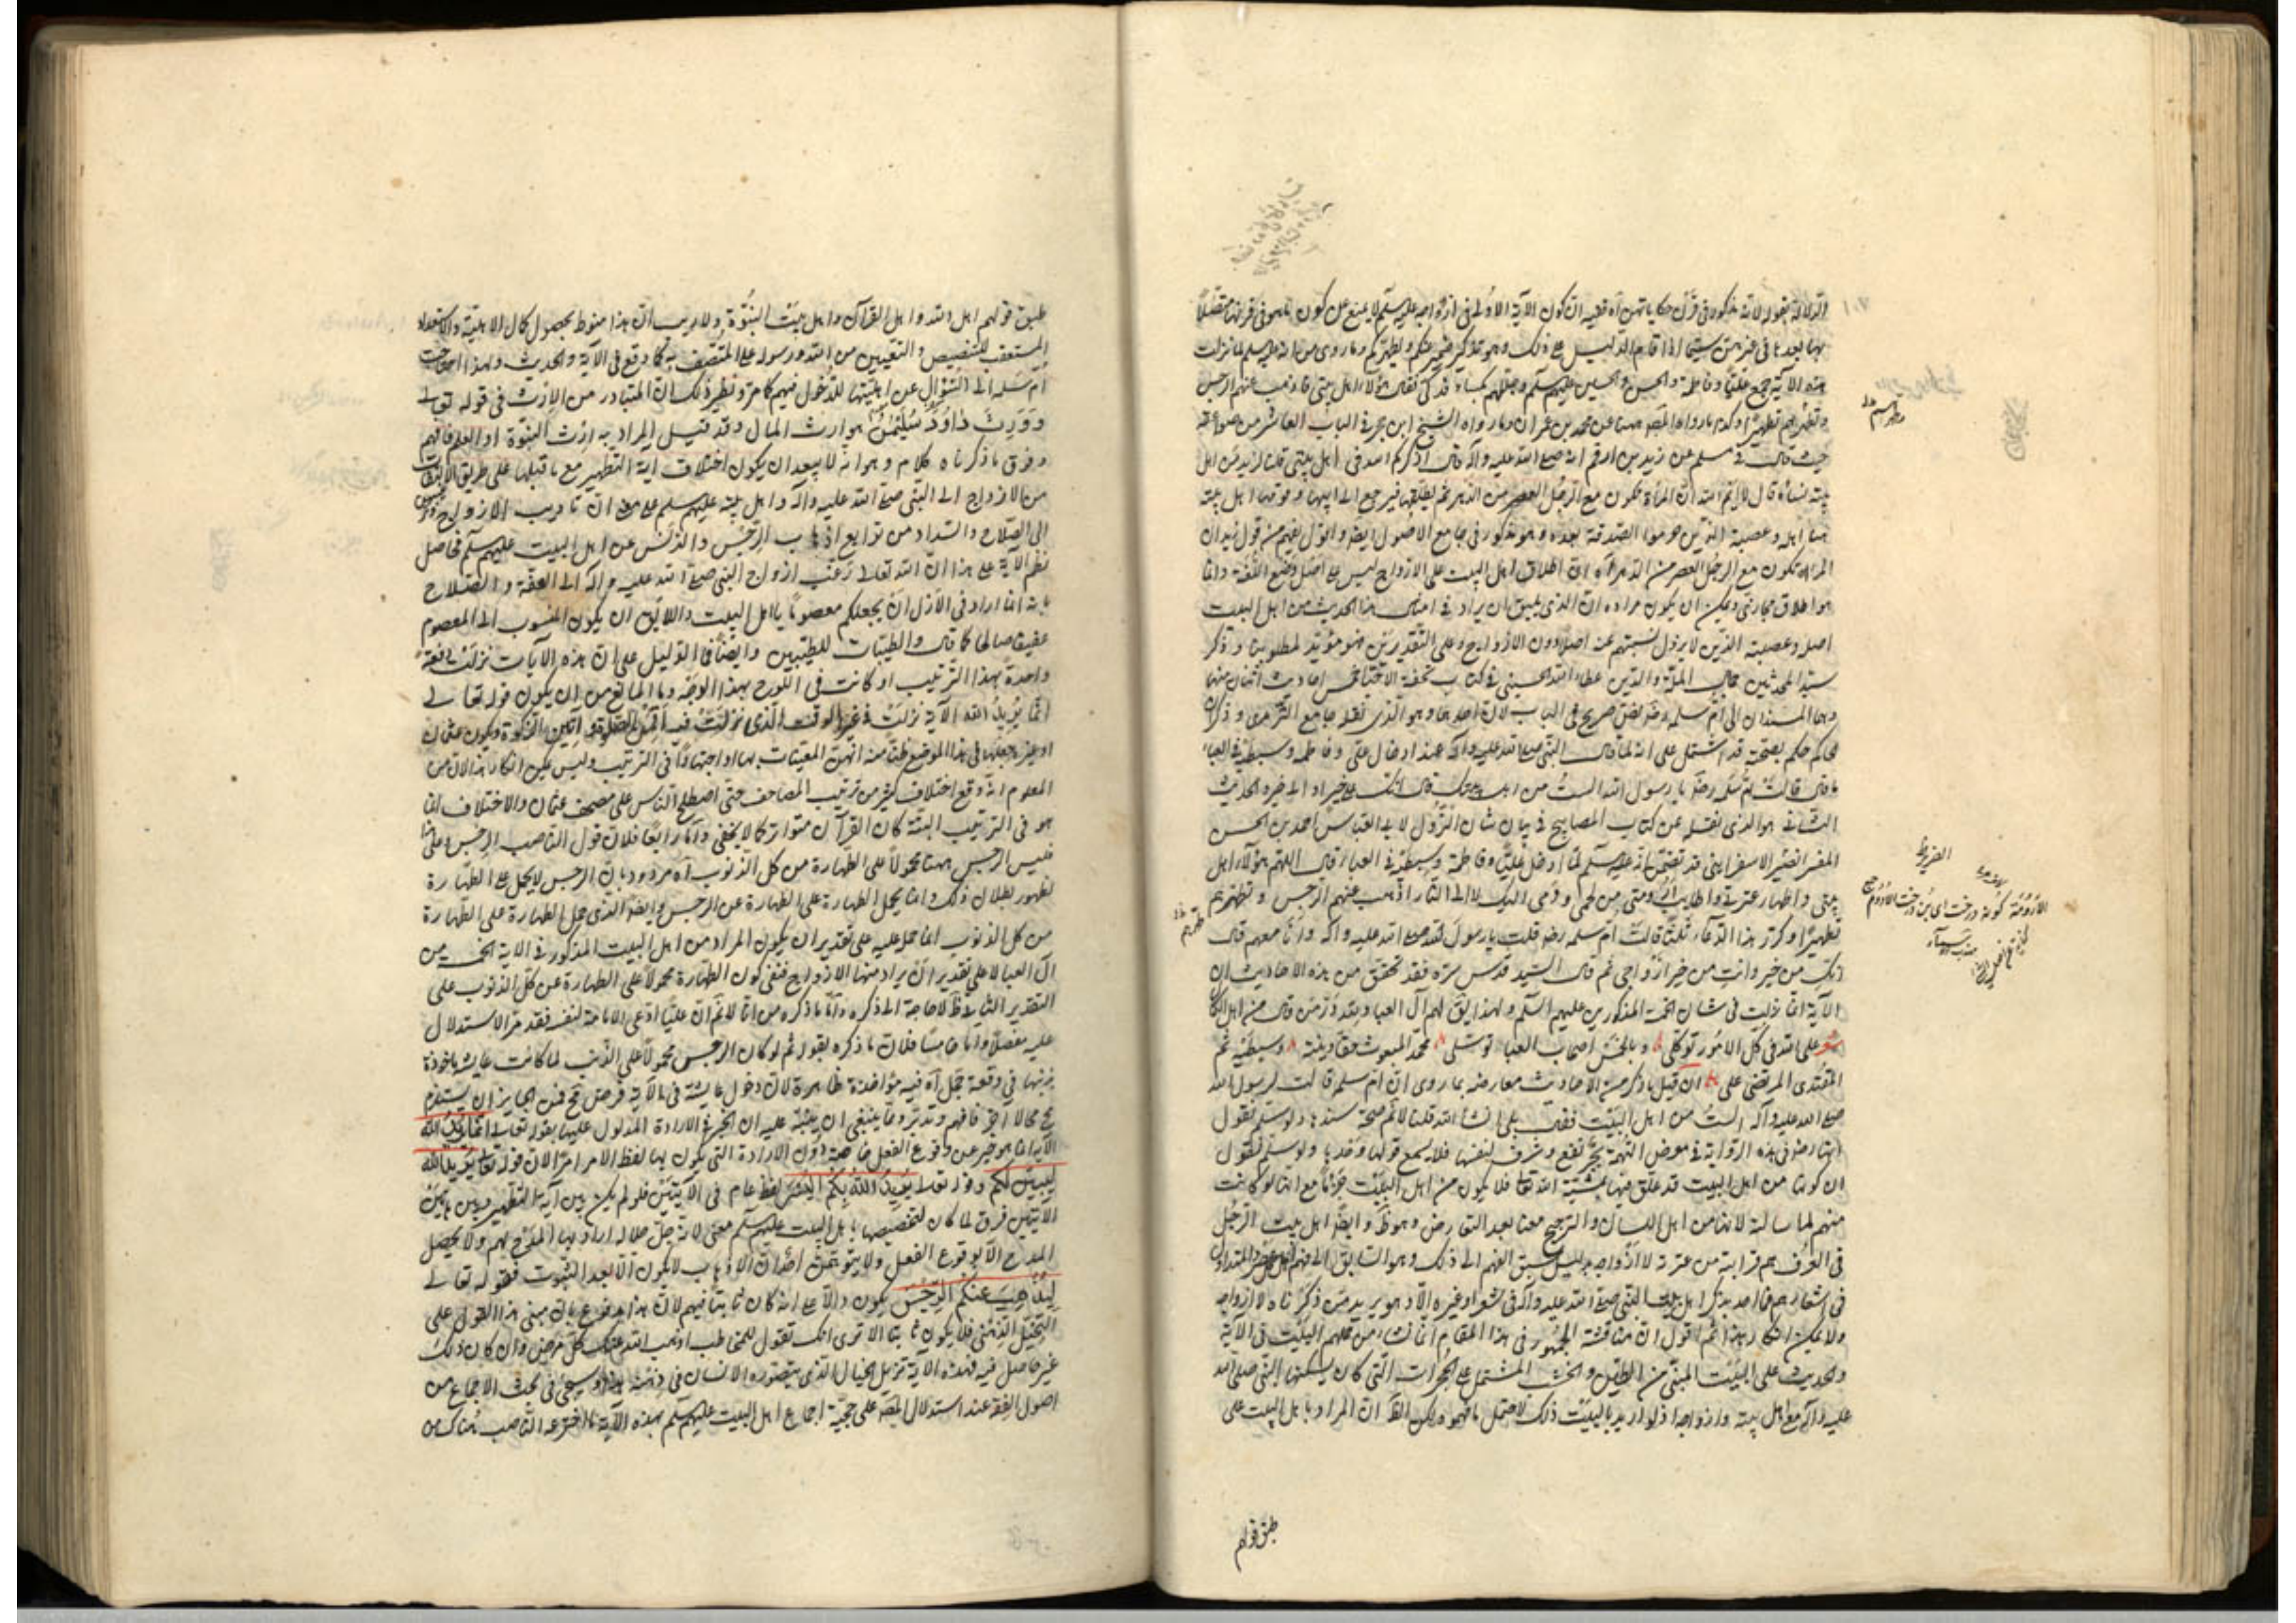 الدلالة بقوله لانه مذكور في قرآن حكاياتهن آه ففيه ان كون الآية الاولى في ازواجه عليه السلم لا يمنع عن كون ما هو في قرينها متصلا
بها بعدها في غيرهن سيما اذا قام الدليل على ذلك وهو تذكير ضمير عنكم ويطهركم وما روى من انه عليه السلم لما نزلت
هذه الآية جمع عليا وفاطمة والحسن والحسين عليهم السلم وجللهم بكساء فدكي فقال هؤلاء اهل بيتي فاذهب عنهم الرجس
وطهرهم تطهيرا وكذا ما رواه المصـ ههنا عن محمد بن عمران وما رواه الشيخ ابن حجر في الباب العاشر من صواعقه
حيث قال في مسلم عن زيد بن ارقم انه صلى الله عليه وآله قال اذكركم الله في اهل بيتي قلنا لزيد من اهل
بيته نساؤه قال لا ايم الله ان المرأة تكون مع الرجل العصر من الدهر ثم يطلقها فيرجع الى ابيها وقومها اهل بيته
هنا اهله وعصبته الذين حرموا الصدقة بعده وهو مذكور في جامع الاصول ايضا واقول يفهم من قول زيد ان
المرأة تكون مع الرجل العصر من الدهر آه ان اطلاق اهل البيت على الازواج ليس على اصل وضع اللغة وانما
هو اطلاق مجازي ويمكن ان يكون مراده ان الذي يليق ان يراد في امثال هذا الحديث من اهل البيت
اصله وعصبته الذين لا يزول نسبتهم عنه اصلا دون الازواج وعلى التقديرين فهو مؤيد لمطلوبنا وذكر
سيد المحدثين جمال الملة والدين عطاء الله الحسيني في كتاب تحفة الاحبا خمس احاديث اثنان منها
وهما المسندان الى ام سلمه رضـ نص صريح في الباب لان احدهما وهو الذي نقله جامع الترمذي وذكر ان
الحاكم حكم بصحته قد اشتمل على انه لما قال النبي صلى الله عليه وآله عند ادخال علي وفاطمه وسبطيه في العباء
ما قال قالت ام سلمه رضـ يا رسول الله الست من اهل بيتك قال انك على خير او الى خير والحديث
الثاني هو الذي نقله عن كتاب المصابيح في بيان شان النزول لابي العباس احمد بن الحسن
المفسر الضرير الاسفرايني قد تضمن انه عليه السلم لما ادخل عليا وفاطمة وسبطيه في العباء قال اللهم هؤلاء اهل
بيتي واطهار عترتي واطايب ارومتي من لحمي ودمي اليك لا الى النار اذهب عنهم الرجس وتطهرهم
تطهيرا وكرر هذا الدعاء ثلثا قالت ام سلمه رضـ قلت يا رسول الله صلى الله عليه وآله وانا معهم قال
انك من خير وانت من خير ازواجي ثم قال السيد قدس سره فقد تحقق من هذه الاحاديث ان
الآية انما نزلت في شان الخمسة المذكورين عليهم السلم ولهذا يقـ لهم آل العبا ولله در من قال من اهل الكمال
شعر على الله في كل الامور توكلي وبالخمس اصحاب العباء توسلي محمد المبعوث حقا وبنته وسبطيه ثم
المقتدى المرتضى علي ان قيل ما ذكر من الاحاديث معارضه بما روى ان ام سلمه قالت لرسول الله
صلى الله عليه وآله الست من اهل البيت فقال بلى ان شاء الله قلنا لا نم صحة سندها ولو سلم نقول
انها رضـ في هذه الرواية في معرض التهمة بجر نفع وشرف لنفسها فلا يسمع قولها وحدها ولو سلم نقول
ان كونها من اهل البيت قد علق فيها بمشية الله تعا فلا يكون من اهل البيت جزما مع انها لو كانت
منهم لما سالته لانها من اهل اللسان والترجيح معنا بعد التعارض وهو ظـ وايضا اهل بيت الرجل
في العرف هم قرابته من عترته لا ازواجه بدليل سبق الفهم الى ذلك وهو السابق الى فهم المتداول
في اشعارهم فما احد يذكر اهل بيت النبي صلى الله عليه وآله في شعر او غيره الا وهو يريد من ذكرناه لا ازواجه
ولا يمكن انكار هذا ثم اقول ان مناقشة الجمهور في هذا المقام انما نشأ من حملهم البيت في الآية
والحديث على البيت المبني من الطين والخشب المشتمل على الحجرات التي كان يسكنها النبي صلى الله
عليه وآله مع اهل بيته وازواجه اذ لو اريد بالبيت ذلك لاحتمل ما فهموه ولكن الظـ ان المراد باهل البيت على
طبق قولهم
طبق قولهم اهل الله واهل القرآن واهل بيت النبوة ولا ريب ان هذا منوط بحصول كمال الاهلية والاستعداد
المستعقب للتنصيص والتعيين من الله ورسوله على المتصف به كما وقع في الآية والحديث ولهذا احتاجت
ام سلمه الى السؤال عن اهليتها للدخول فيهم كما مر ونظير ذلك ان المتبادر من الارث في قوله تعالى
وورث داود سليمن هو ارث المال وقد قيل المراد به ارث النبوة او العلم فافهم
وفوق ما ذكرناه كلام وهو انه لا يبعد ان يكون اختلاف آية التطهير مع ما قبلها على طريق الالتفات
من الازواج الى النبي صلى الله عليه وآله واهل بيته عليهم السلم على معنى ان تاديب الازواج وترغيبهن
الى الصلاح والسداد من توابع اذهاب الرجس والدنس عن اهل البيت عليهم السلم فحاصل
نظم الآية على هذا ان الله تعالى رغب ازواج النبي صلى الله عليه وآله الى العفة والصلاح
بانه انما اراد في الازل ان يجعلكم معصوما يا اهل البيت واللايق ان يكون المنسوب الى المعصوم
عفيفا صالحا كما قال والطيبات للطيبين وايضا فما الدليل على ان هذه الآيات نزلت دفعة
واحدة بهذا الترتيب او كانت في اللوح بهذا الوجه وما المانع من ان يكون قوله تعالى
انما يريد الله الآية نزلت في غير الوقت الذي نزلت فيه اقمن الصلوة وآتين الزكوة ويكون عثمان
او غيره جعلها في هذا الموضع ظنا منه انهن المعنيات بها او اجتهادا في الترتيب وليس يمكن انكار هذا لان من
المعلوم انه وقع اختلاف كثير من ترتيب المصاحف حتى اصطلح الناس على مصحف عثمان والاختلاف انما
هو في الترتيب البتة كان القرآن متواتر كما لا يخفى واما رابعا فلان قول الناصب الرجس على هذا
فليس الرجس ههنا محمولا على الطهارة من كل الذنوب آه مردود بان الرجس لا يحمل على الطهارة
لظهور بطلان ذلك وانما يحمل الطهارة على الطهارة عن الرجس وايضا الذي حمل الطهارة على الطهارة
من كل الذنوب انما حمل عليه على تقدير ان يكون المراد من اهل البيت المذكور في الآية الخمسة من
آل العبا لا على تقدير ان يراد منها الازواج فنفي كون الطهارة محمولا على الطهارة عن كل الذنوب على
التقدير الثاني ظـ لا حاجة الى ذكره واما ما ذكره من انا لا نم ان عليا ادعى الامامة لنفسه فقد مر الاستدلال
عليه مفصلا واما خامسا فلان ما ذكره بقوله ثم لو كان الرجس محمولا على الذنب لما كانت عايشه ماخوذة
بذنبها في وقعة جمل آه فيه مؤاخذة ظاهرة لان دخول عايشة في الآية فرض مح فمن الجايز ان يستلزم
مح محالا آخر فافهم وتدبر ومما ينبغي ان ينبه عليه ان الخبر في الارادة المدلول عليها بقوله تعالى انما يريد الله
الآية انما هو خبر عن وقوع الفعل خاصة دون الارادة التي يكون بها لفظ الامر امرا لان قوله تعالى يريد الله
ليبين لكم وقوله تعالى يريد الله بكم اليسر لفظ عام في الآيتين فلو لم يكن بين آية التطهير وبين هاتين
الآيتين فرق لما كان لتخصيصها باهل البيت عليهم السلم معنى لانه جل جلاله اراد بها المدح لهم ولا يحصل
المدح الا بوقوع الفعل ولا يتوهمن احد ان الاذهاب لا يكون الا بعد الثبوت فقوله تعالى
ليذهب عنكم الرجس يكون دالا على انه كان ثابتا فيهم لان هذا مدفوع بان مبنى هذا القول على
التخيل الذهني فلا يكون ثابتا الا ترى انك تقول للمخاطب اذهب الله عنك كل مرض وان كان ذلك
غير حاصل فيه فهذه الآية تزيل الخيال الذي يتصوره الانسان في ذهنه هذا وسيجئ في بحث الاجماع من
اصول الفقه عند استدلال المصـ على حجية اجماع اهل البيت عليهم السلم بهذه الآية ما اخترعه الناصب هناك من